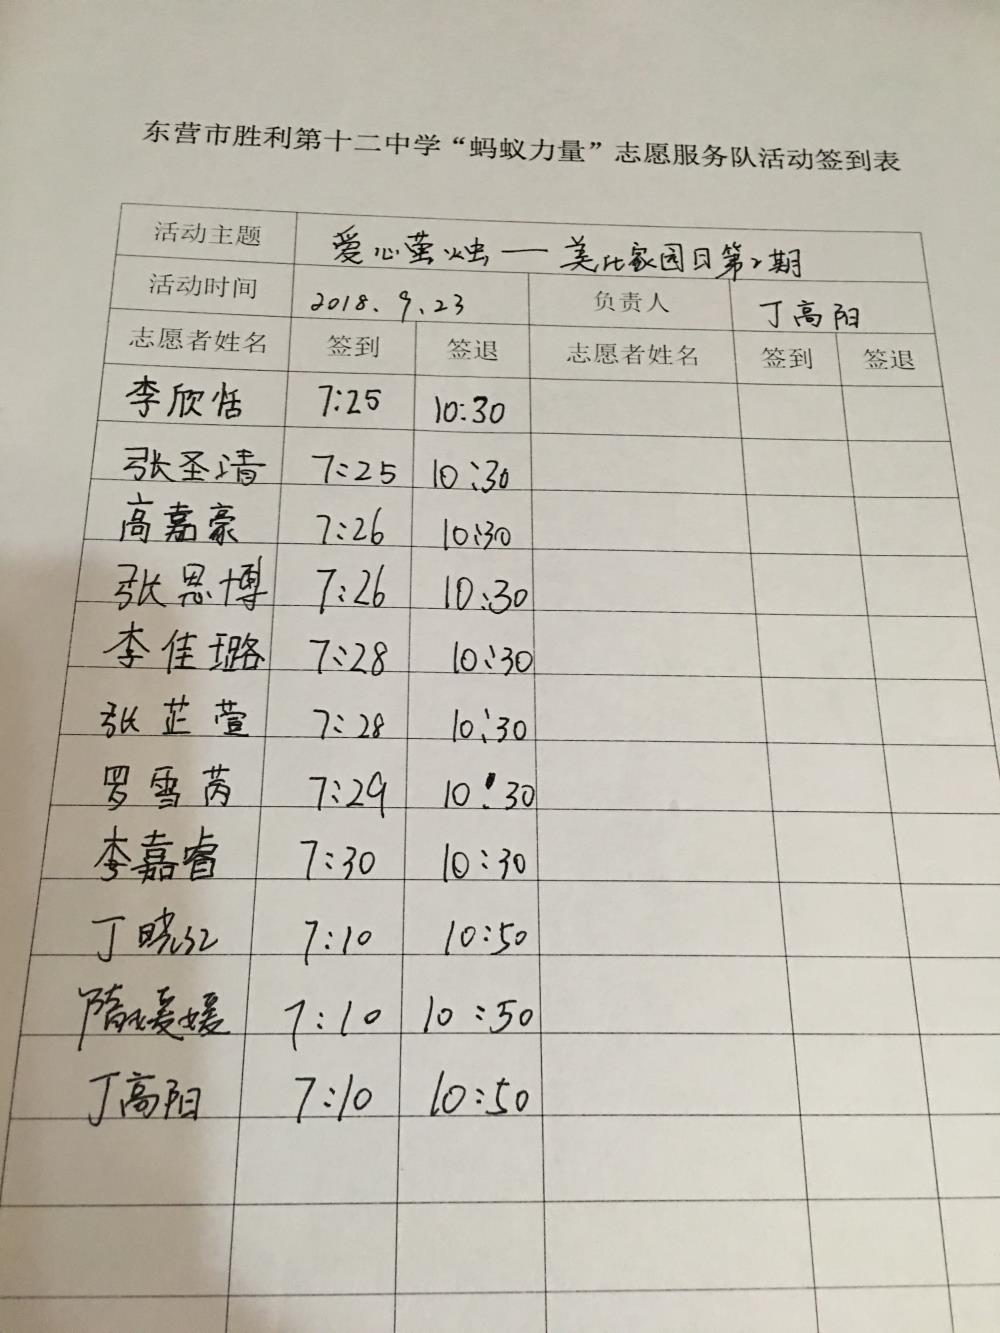 东营市胜利第十二中学“蚂蚁力量”志愿服务队活动签到表
活动主题 爱心萤烛——美化家园日第2期
活动时间 2018.9.23 负责人 丁高阳
志愿者姓名 签到 签退 志愿者姓名 签到 签退
李欣恬 7:25 10:30
张圣清 7:25 10:30
高嘉豪 7:26 10:30
张恩博 7:26 10:30
李佳璐 7:28 10:30
张芷萱 7:28 10:30
罗雪芮 7:29 10:30
李嘉睿 7:30 10:30
丁晓红 7:10 10:50
隋媛媛 7:10 10:50
丁高阳 7:10 10:50